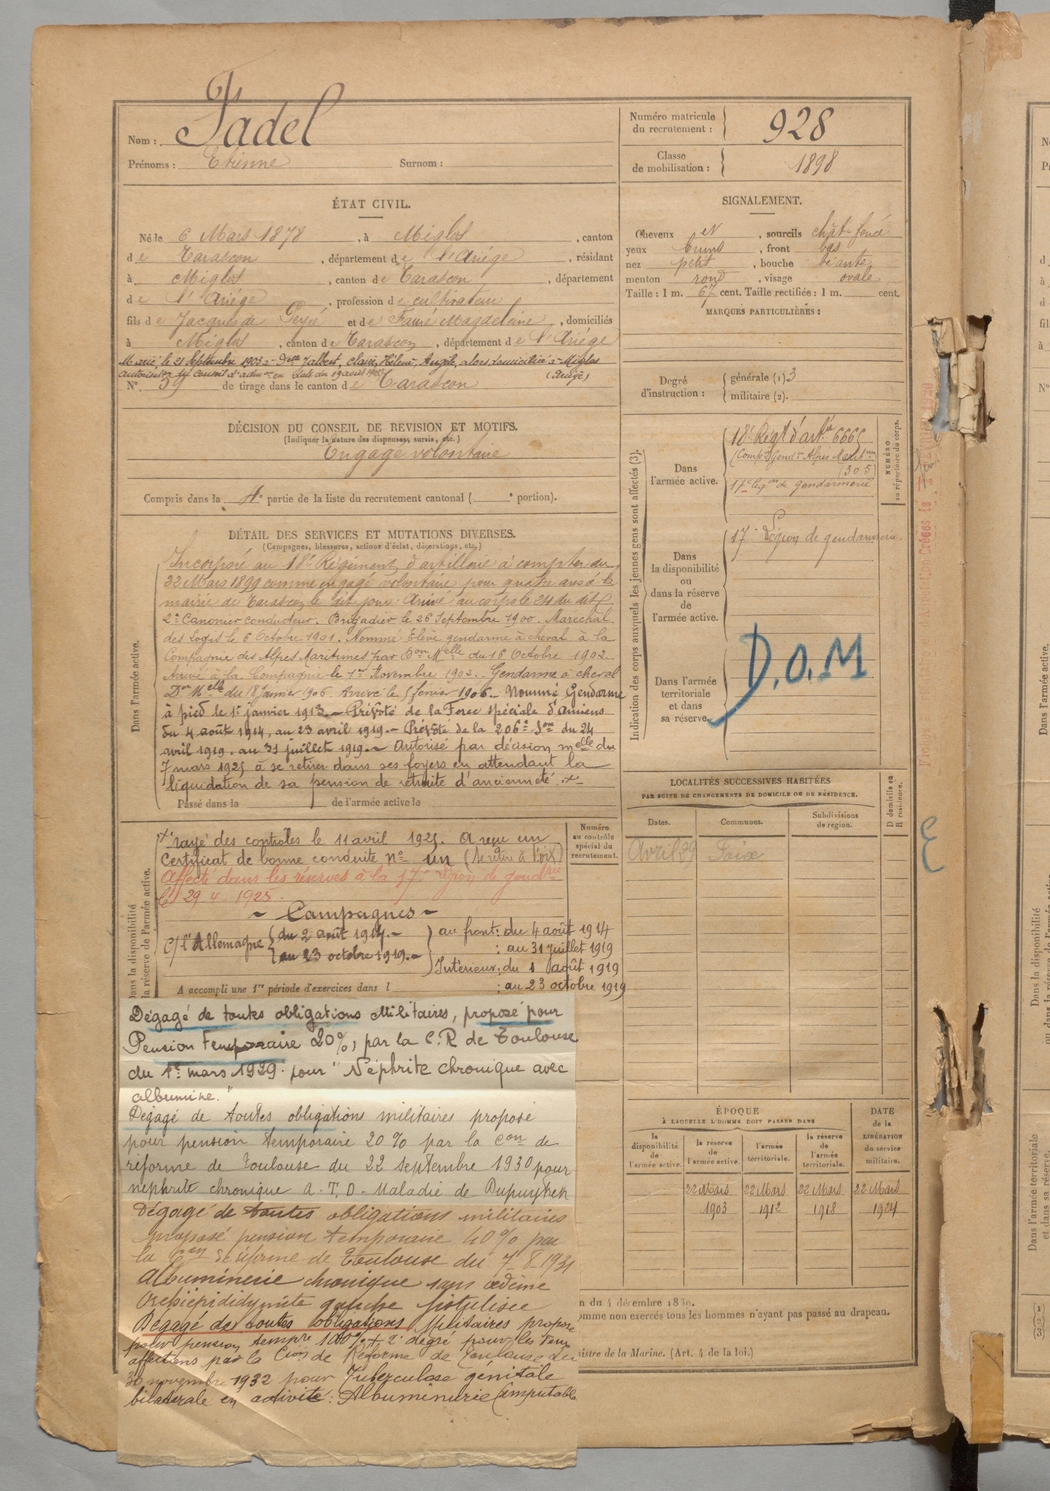 Nom : Fadel
Prénoms : Etienne Surnom :
Numéro matricule du recrutement : 928
Classe de mobilisation : 1898
ÉTAT CIVIL.
Né le 6 Mars 1878, à Miglos, canton
de Tarascon, département de l'Ariège, résidant
à Miglos, canton de Tarascon, département
de l'Ariège, profession de cultivateur
fils de Jacques de et de Fauré Magdelaine, domiciliés
à Miglos, canton de Tarascon, département de l'Ariège
Marié le 21 Septembre 1903 à Delle Jalbert, Claire, Hélène, Angèle, alors domiciliée à Miglos
(Ariège)
N°. 59 de tirage dans le canton de Tarascon
SIGNALEMENT.
Cheveux et, sourcils chât. foncé
yeux bruns, front bas
nez petit, bouche béante
menton rond, visage ovale
Taille : 1 m. 67 cent. Taille rectifiée : 1 m. cent.
MARQUES PARTICULIÈRES :
Degré d'instruction : générale (1) 3
militaire (2).
DÉCISION DU CONSEIL DE REVISION ET MOTIFS.
(Indiquer la nature des dispenses, sursis, etc.)
Engagé volontaire
Compris dans la 4e partie de la liste du recrutement cantonal ( e portion).
DÉTAIL DES SERVICES ET MUTATIONS DIVERSES.
(Campagnes, blessures, actions d'éclat, décorations, etc.)
Dans l'armée active.
Incorporé au 18e Régiment d'artillerie à compter du
22 Mars 1899 comme engagé volontaire pour quatre ans à la
mairie de Tarascon le dit jour. Arrivé au corps le 24 du dit
2e Canonier conducteur. Brigadier le 26 Septembre 1900. Maréchal
des Logis le 6 Octobre 1901. Nommé Elève gendarme à cheval à la
Compagnie des Alpes Maritimes par Don Melle du 16 Octobre 1902.
Arrivé à la Compagnie le 1er Novembre 1902. Gendarme à cheval
Don Melle du 18 Janvier 1906. Arrivé le février 1906. Nommé Gendarme
à pied le 1er janvier 1913. Prévôté de la Force spéciale d'Amiens
du 4 août 1914, au 23 avril 1919. Prévôté de la 206e Don du 24
avril 1919. au 31 juillet 1919. Autorisé par décision melle du
7 mars 1925 à se retirer dans ses foyers en attendant la
liquidation de sa pension de retraite d'ancienneté.
Passé dans la de l'armée active le
Indication des corps auxquels les jeunes gens sont affectés (3).
NUMÉRO au répertoire du corps.
Dans l'armée active.
18e Régt d'art. 6665
(Comp. Gend. Alpes Maritimes
305
17e légion de gendarmerie
Dans la disponibilité ou dans la réserve de l'armée active.
17e Légion de gendarmerie
Dans l'armée territoriale et dans sa réserve.
D.O.M
rayé des contrôles le 11 avril 1925. A reçu un
Certificat de bonne conduite n° un (se retire à Foix)
Affecté dans les réserves à la 17e région de gendrie
le 29 4 1925.
Campagnes
c/ l'Allemagne du 2 août 1914. au front : du 4 août 1914
au 23 octobre 1919. : au 31 juillet 1919
Intérieur : du 1 août 1919
A accompli une 1re période d'exercices dans l : au 23 octobre 1919
Numéro au contrôle spécial du recrutement.
LOCALITÉS SUCCESSIVES HABITÉES
PAR SUITE DE CHANGEMENTS DE DOMICILE OU DE RÉSIDENCE.
Dates. Communes. Subdivisions de région. D domicile ou R résidence.
Avril 29 Foix
Dégagé de toutes obligations Militaires, proposé pour
Pension Temporaire 20%, par la C.R de Toulouse
du 1er mars 1929. pour "Néphrite chronique avec
albumine."
Dégagé de toutes obligations militaires proposé
pour pension temporaire 20% par la Con de
réforme de Toulouse du 22 septembre 1930 pour
néphrite chronique A.T.D. Maladie de Dupuytren
Dégagé de toutes obligations militaires
proposé pension temporaire 40% par
la Con Réforme de Toulouse du 7.8.1931
Albuminerie chronique sans œdème
Orchiépididymite gauche fistulisée
Dégagé de toutes obligations Militaires proposé
pour pension tempre 100% + 2e degré pour les
affections par la Cion de Réforme de Toulouse du
30 novembre 1932 pour Tuberculose génitale
bilatérale en activité : Albuminurie (imputable
ÉPOQUE
À LAQUELLE L'HOMME DOIT PASSER DANS
DATE de la LIBÉRATION du service militaire.
la disponibilité de l'armée active. la réserve de l'armée active. l'armée territoriale. la réserve de l'armée territoriale.
22 Mars 1903 22 Mars 1912 22 Mars 1918 22 Mars 1924
n du 4 décembre 18
omme non exercés tous les hommes n'ayant pas passé au drapeau.
istre de la Marine. (Art. 4 de la loi.)